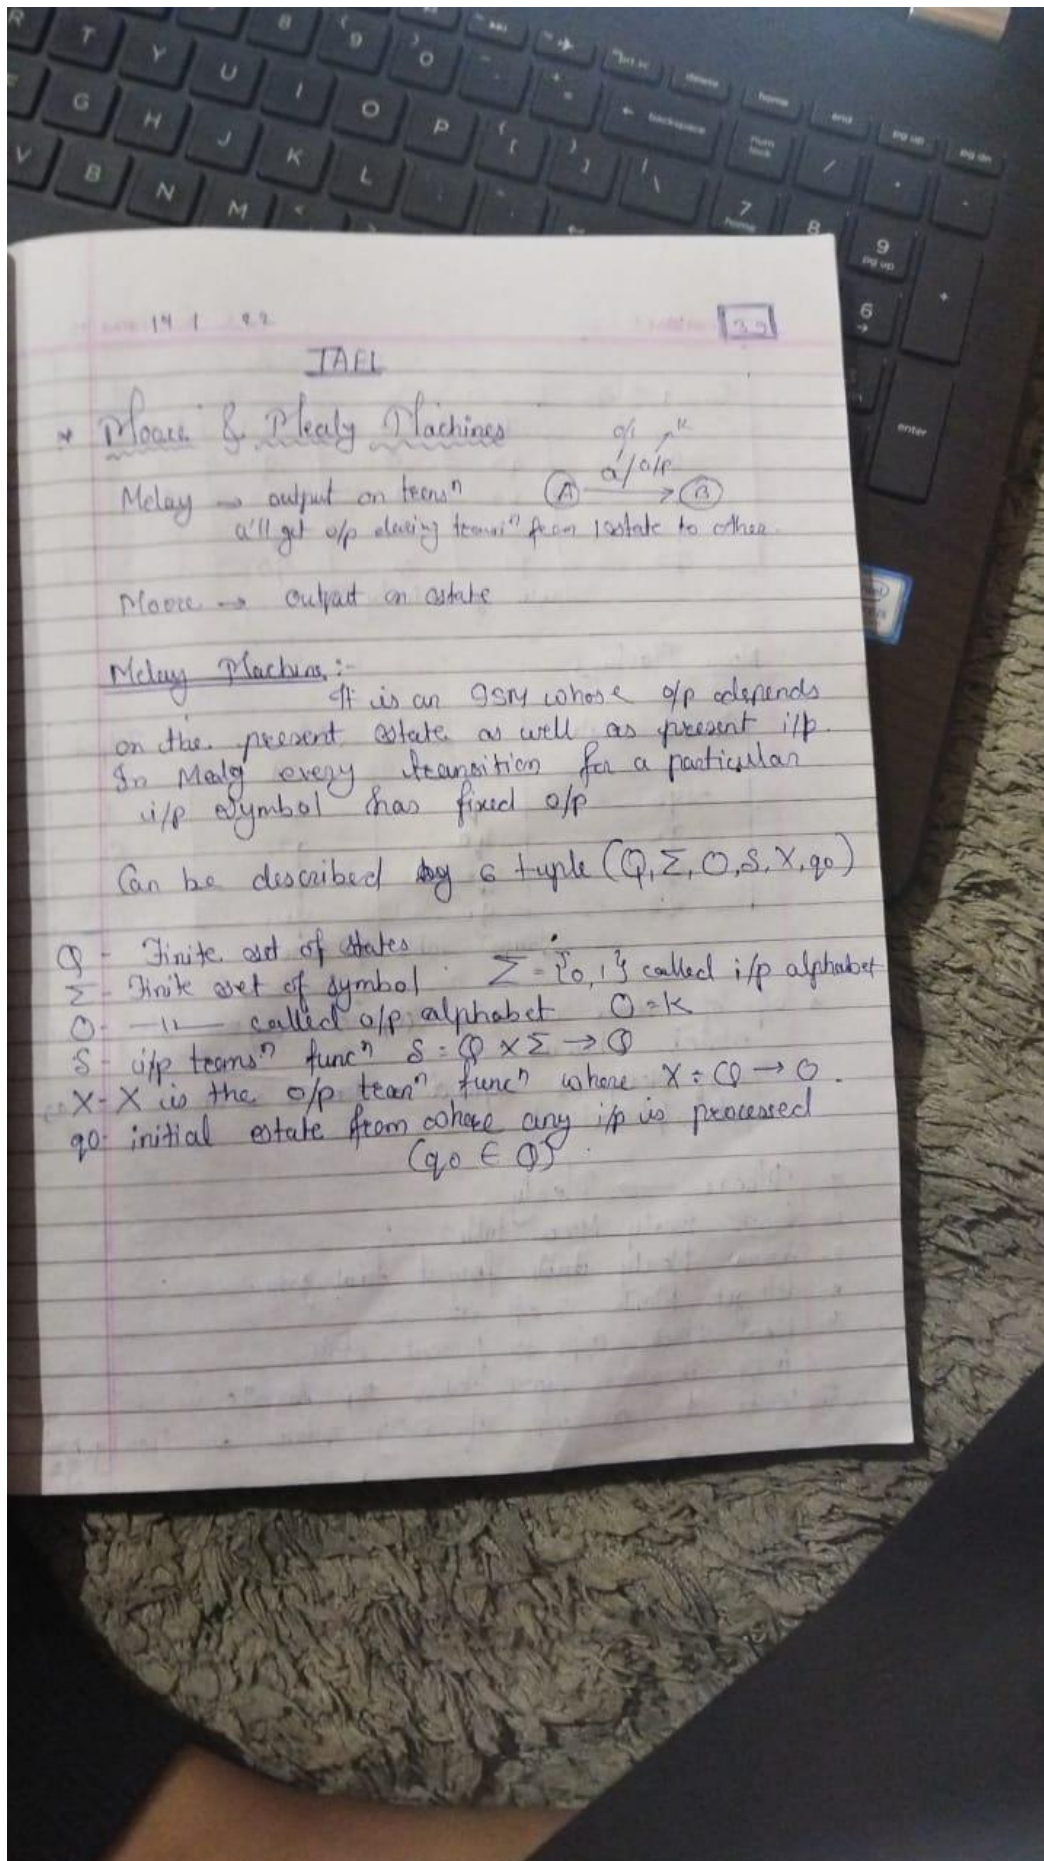 R T Y U 8 ( 9 ) 0 - + = prt sc delete home end pg up pg dn
G H J K I O P { [ } ] | \ ← backspace num lock / * -
V B N M < L 7 home 8 9 pg up +
6 →
enter
14 1 22
39
TAFL
* Moore & Mealy Machines
0/1 K
Melay → output on transⁿ A a/o/p B
u'll get o/p during transiⁿ from 1 state to other.
Moore → output on state
Melay Machine :-
It is an FSM whose o/p depends
on the present state as well as present i/p.
In Mealy every transition for a particular
i/p symbol has fixed o/p
Can be described by 6 tuple (Q, Σ, O, δ, X, q0)
Q - Finite set of states
Σ - Finite set of symbol Σ = {0, 1} called i/p alphabet
O - —11— called o/p alphabet O = K
δ - i/p transⁿ funcⁿ δ : Q × Σ → Q
X - X is the o/p tranⁿ funcⁿ where X : Q → O.
q0 - initial state from where any i/p is processed
(q0 ∈ Q)